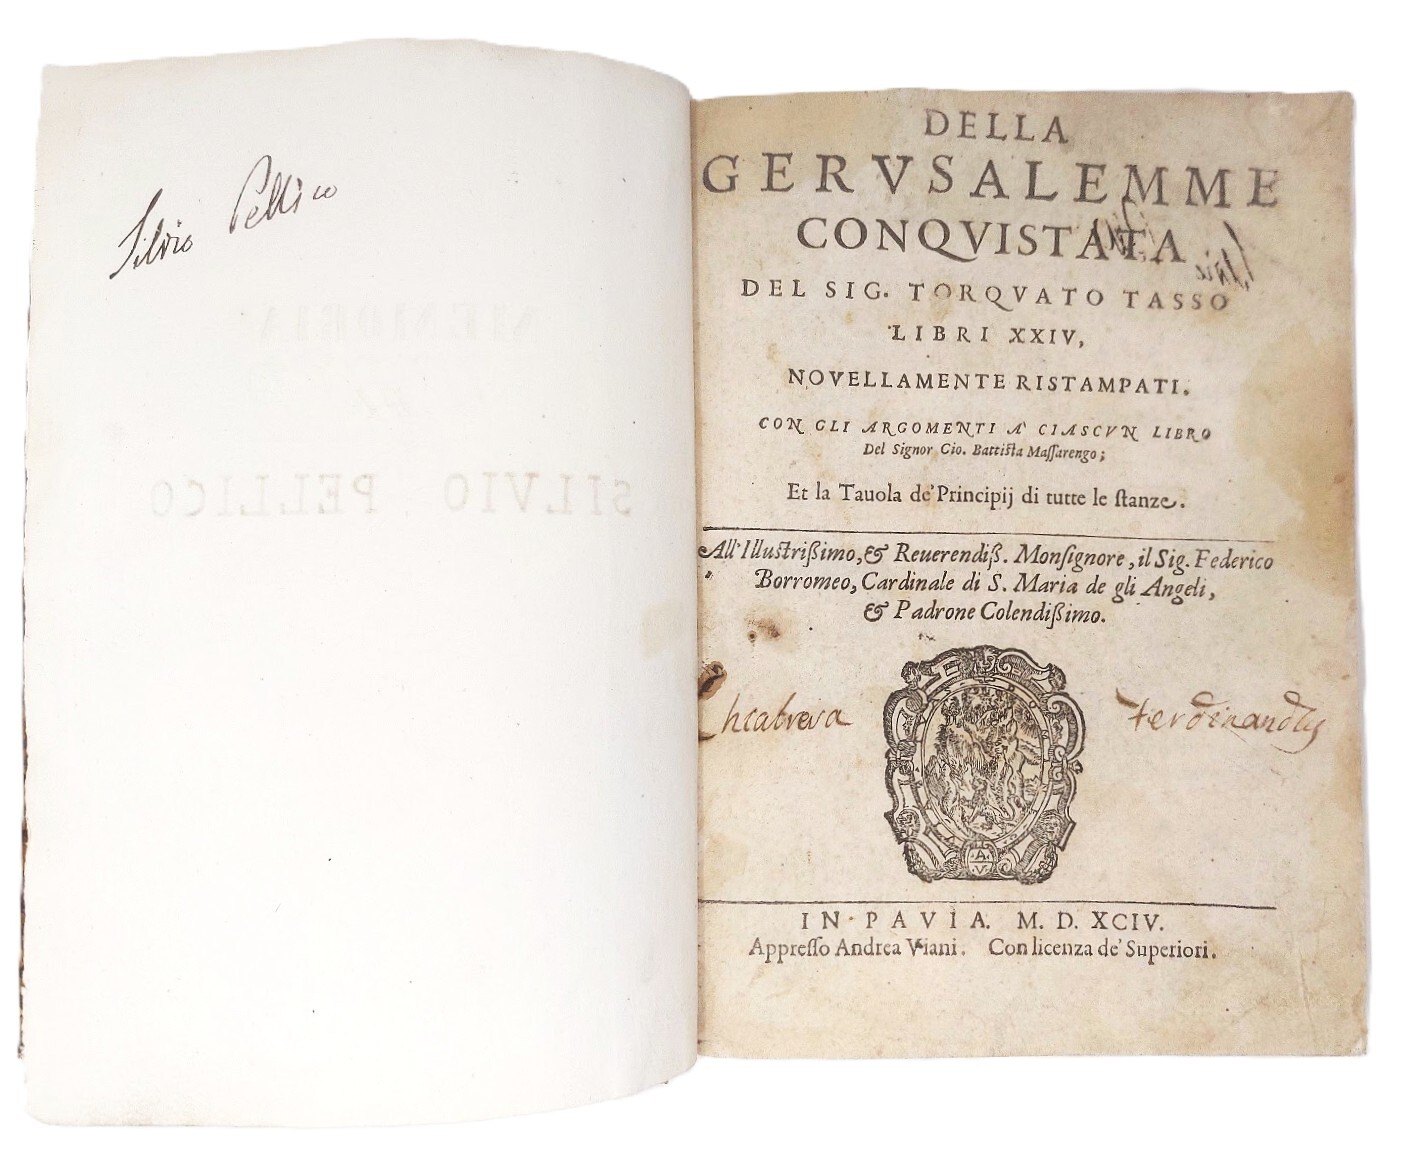 Silvio Pellico
MEMORIA
SILVIO PELLICO
DELLA
GERVSALEMME
CONQVISTATA
DEL SIG. TORQVATO TASSO
LIBRI XXIV,
NOVELLAMENTE RISTAMPATI.
CON GLI ARGOMENTI A' CIASCVN LIBRO
Del Signor Gio. Battista Maſſarengo;
Et la Tauola de' Principij di tutte le ſtanze.
All'Illustrißimo, & Reuerendiß. Monſignore, il Sig. Federico
Borromeo, Cardinale di S. Maria de gli Angeli,
& Padrone Colendißimo.
Ferdinandus
A.
V.
IN PAVIA. M. D. XCIV.
Appreſſo Andrea Viani. Con licenza de' Superiori.